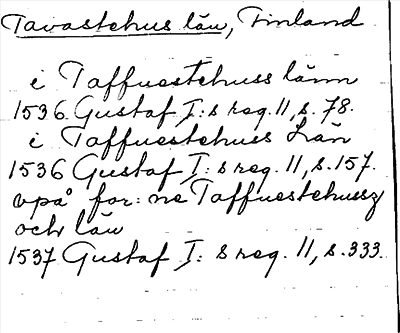 Tavastehus län, Finland
i Taffuestehuss länn
1536 Gustaf I:s reg. 11, s. 78.
i Taffuestehuss Län
1536 Gustaf I:s reg. 11, s. 157.
vpå for:ne Taffuestehussz
och län
1537 Gustaf I:s reg. 11, s. 333.